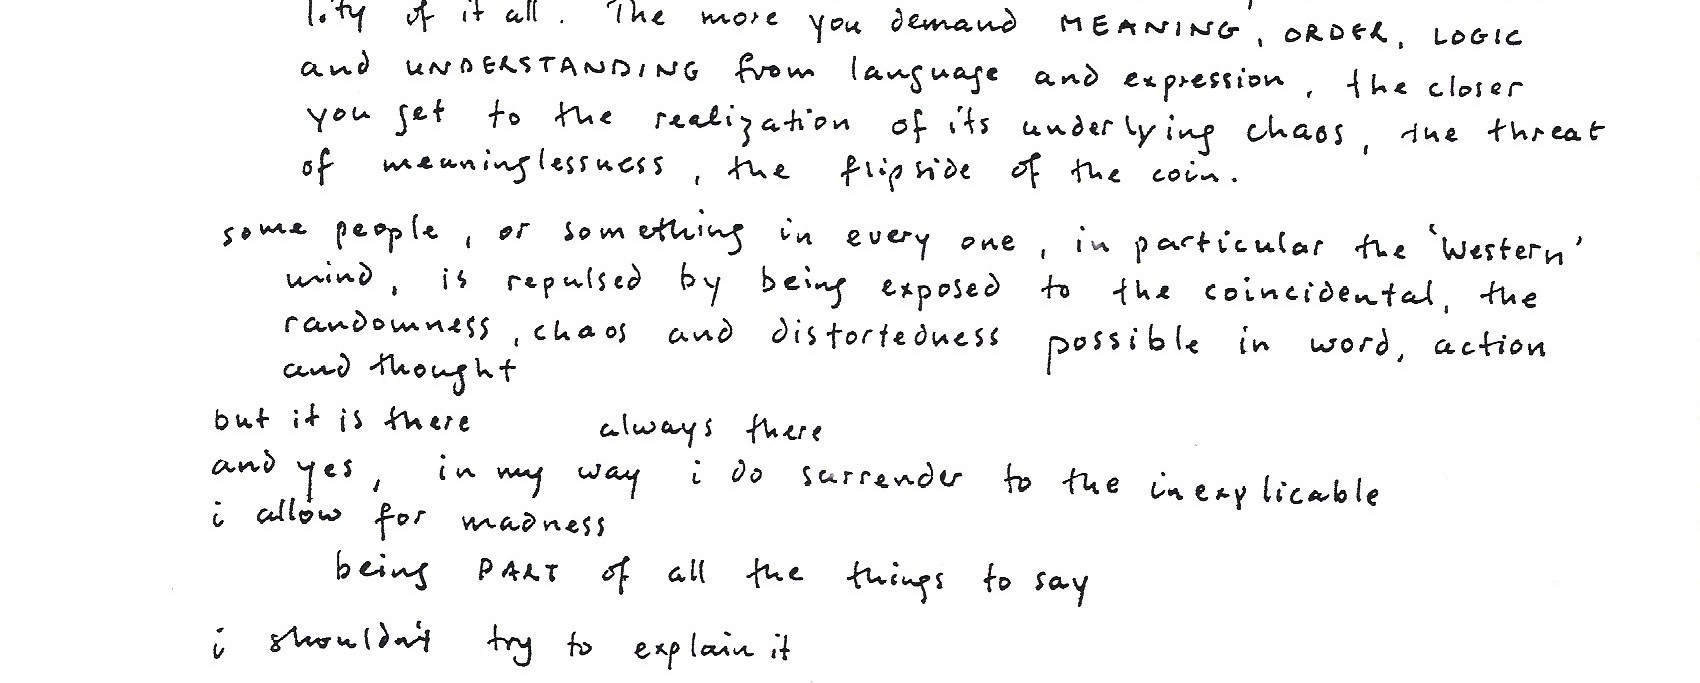 lity of it all. The more you demand MEANING, ORDER, LOGIC
and UNDERSTANDING from language and expression, the closer
you get to the realization of its underlying chaos, the threat
of meaninglessness, the flipside of the coin.
some people, or something in every one, in particular the 'Western'
mind, is repulsed by being exposed to the coincidental, the
randomness, chaos and distortedness possible in word, action
and thought
but it is there always there
and yes, in my way i do surrender to the inexplicable
i allow for madness
being PART of all the things to say
i shouldn't try to explain it